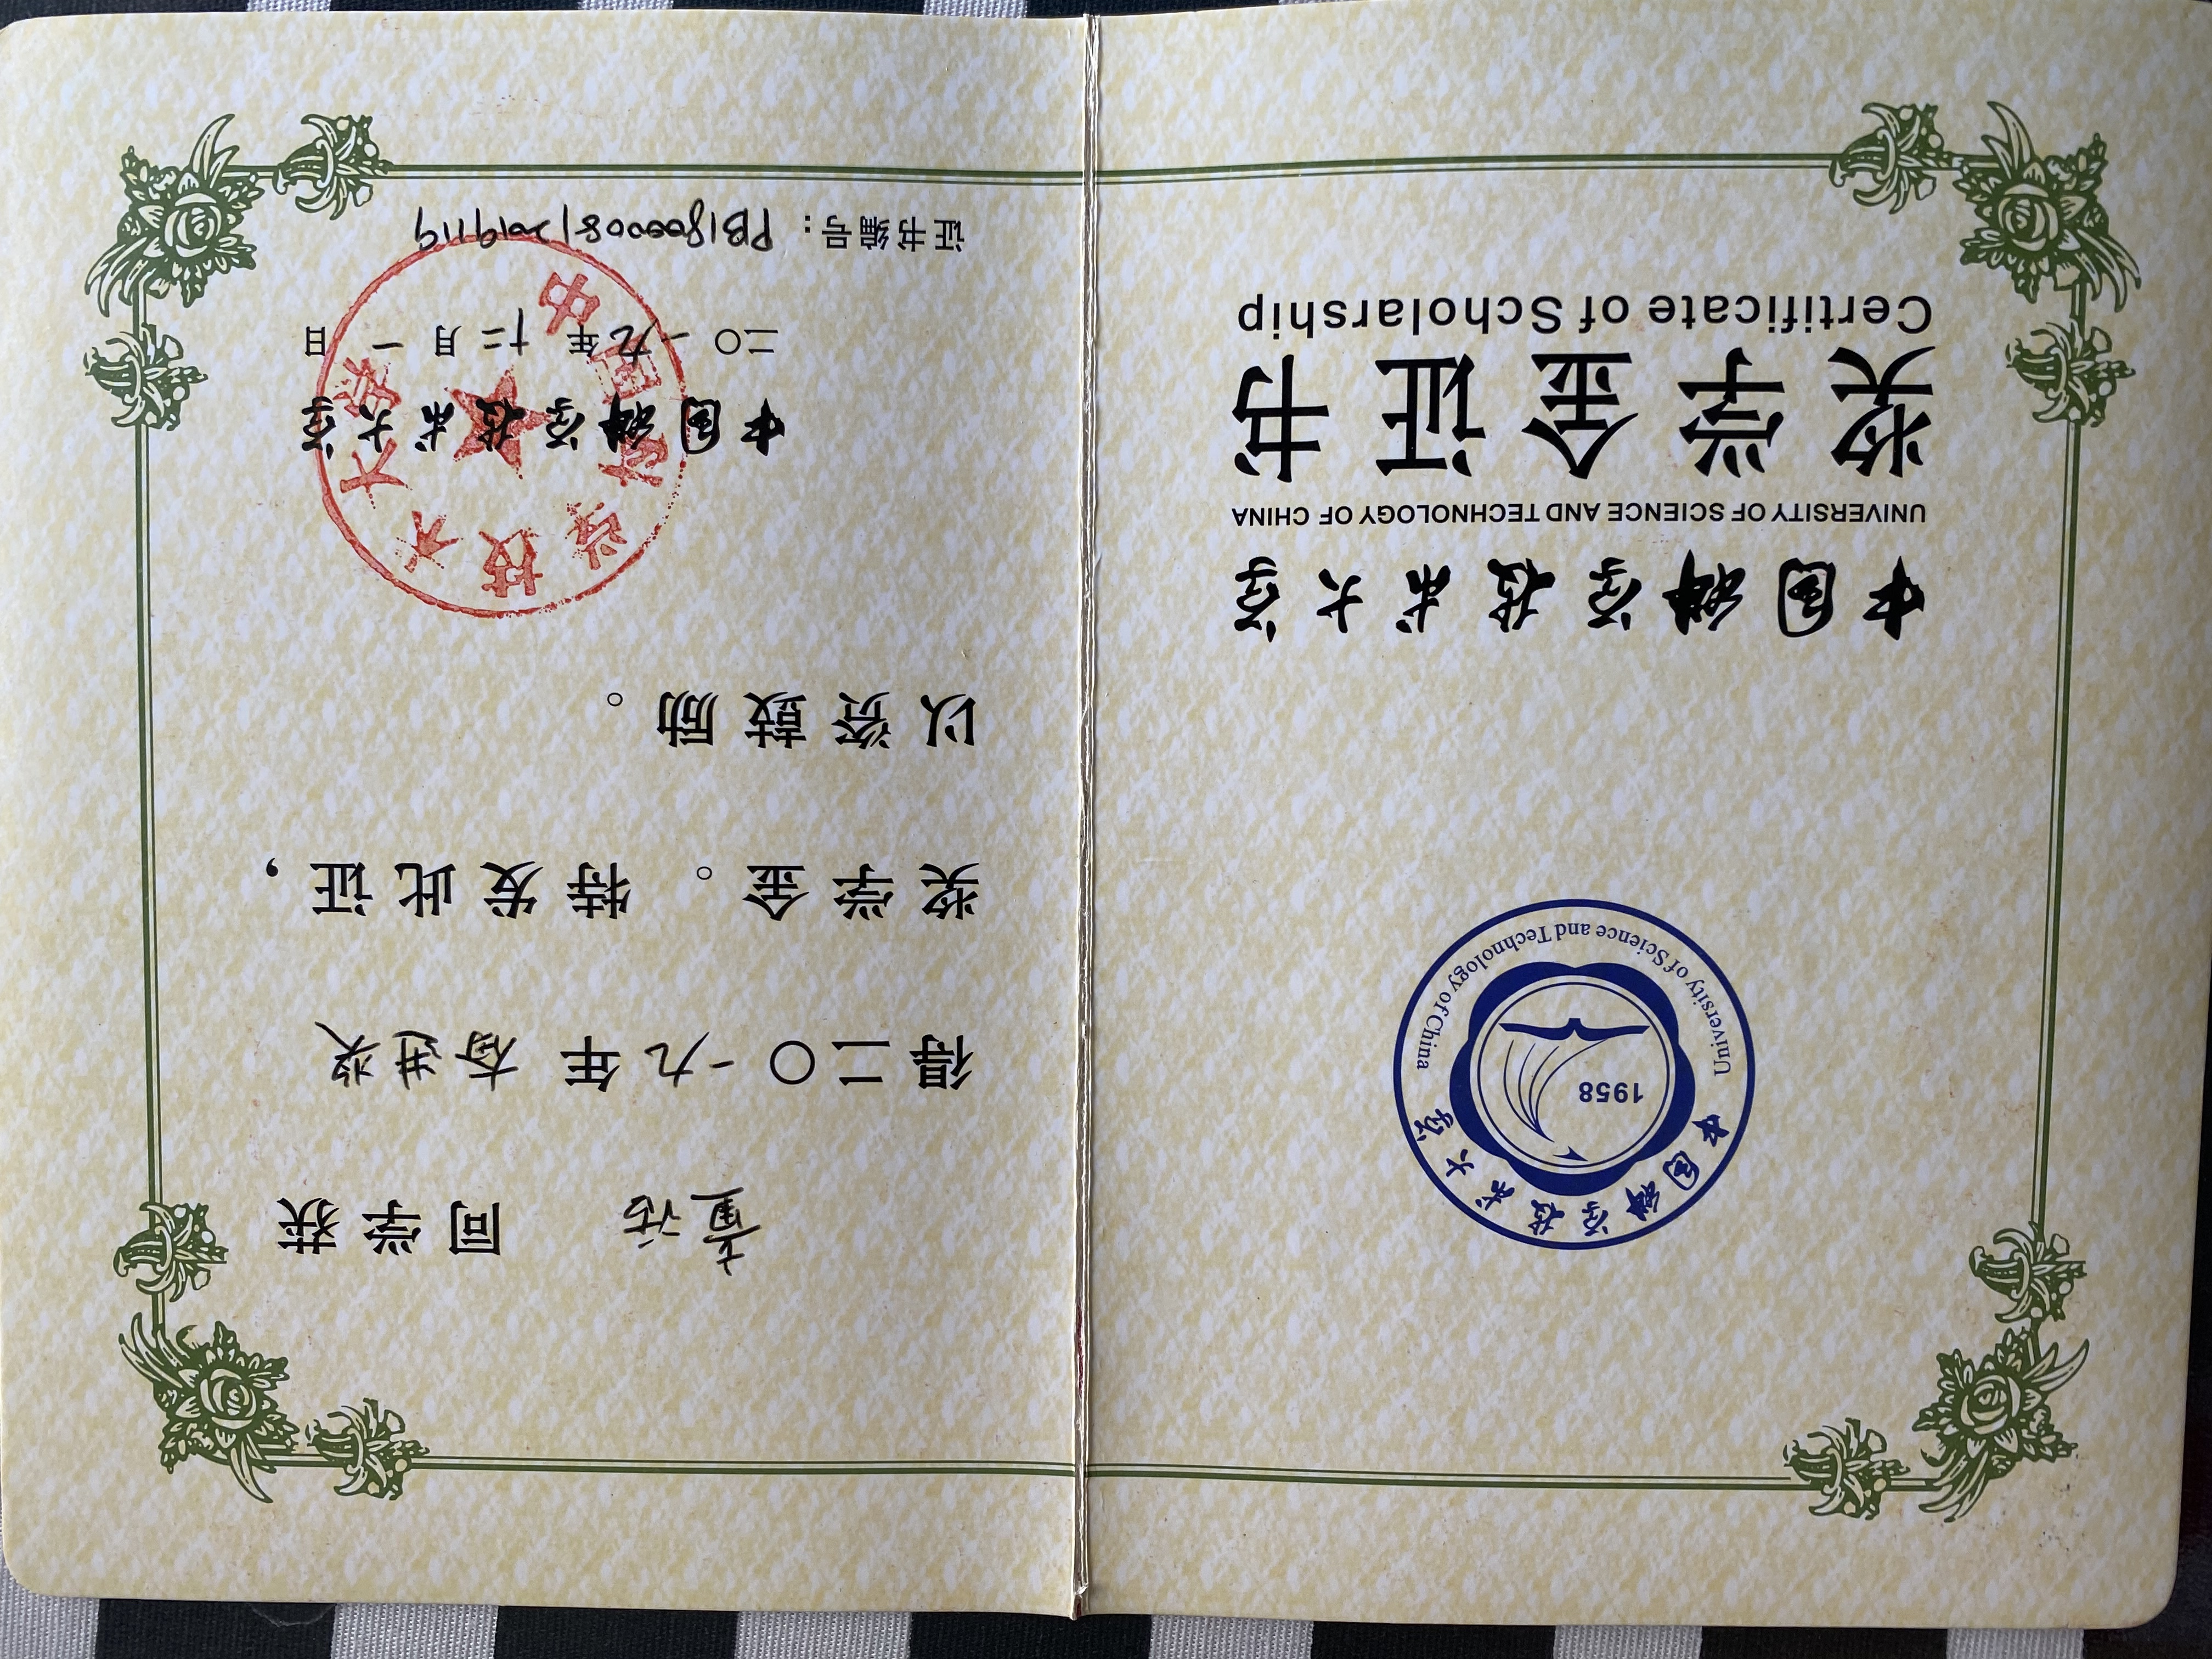 中国科学技术大学
1958
University of Science and Technology of China
中国科学技术大学
UNIVERSITY OF SCIENCE AND TECHNOLOGY OF CHINA
奖学金证书
Certificate of Scholarship
童话 同学获
得二〇一九年 奋进奖
奖学金。特发此证，
以资鼓励。
中国科学技术大学
中国科学技术大学
二〇一九年十二月一日
证书编号：PB180000812019119